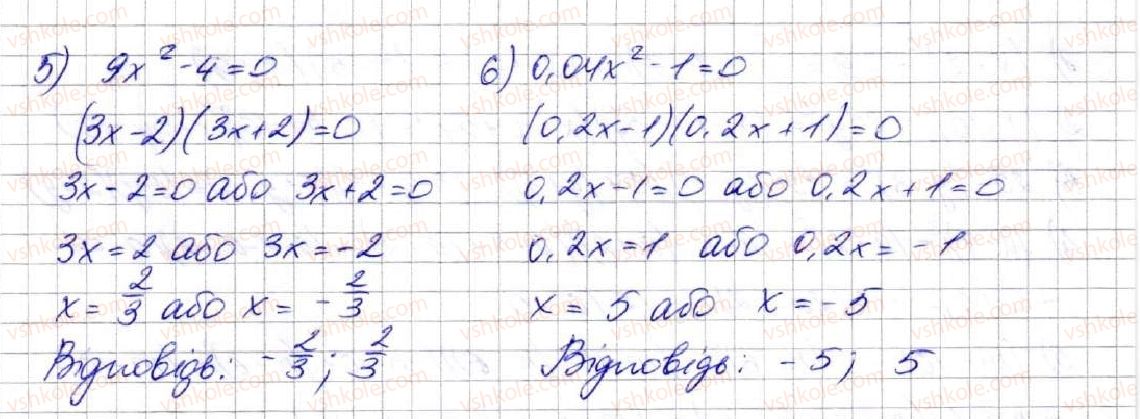 5) 9x² - 4 = 0
(3x - 2)(3x + 2) = 0
3x - 2 = 0 або 3x + 2 = 0
3x = 2 або 3x = -2
x = 2/3 або x = -2/3
Відповідь: -2/3; 2/3
6) 0,04x² - 1 = 0
(0,2x - 1)(0,2x + 1) = 0
0,2x - 1 = 0 або 0,2x + 1 = 0
0,2x = 1 або 0,2x = -1
x = 5 або x = -5
Відповідь: -5; 5
vshkole.com